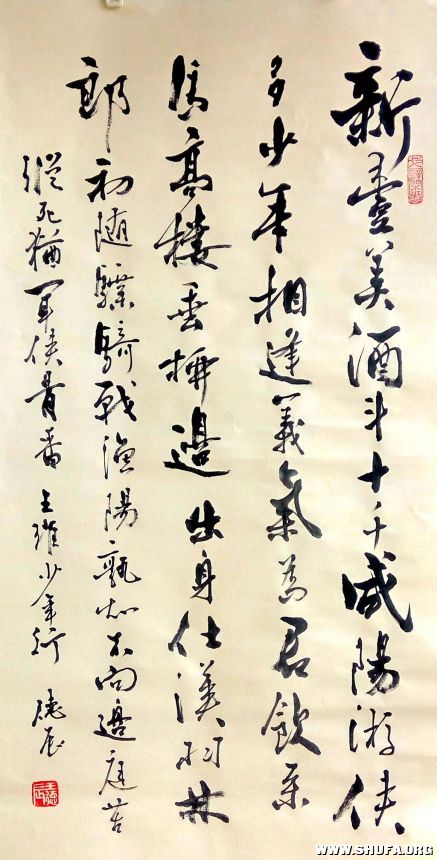 新豐美酒斗十千咸陽游俠
多少年相逢義氣為君飲系
馬高樓垂柳邊出身仕漢羽林
郎初隨驃騎戰漁陽孰知不向邊庭苦
縱死猶聞俠骨香 王維少年行
WWW.SHUFA.ORG